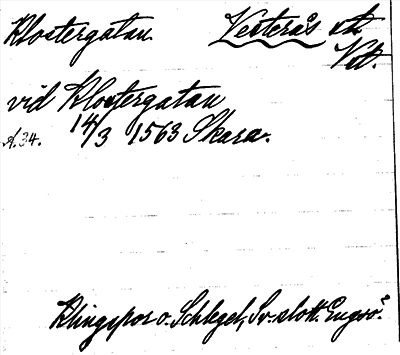 Klostergatan. Vesterås st.
Vstl.
vid Klostergatan
A.34. 14/3 1563 Skara.
Klingspor o. Schlegel, Sv. slott. Engsö.